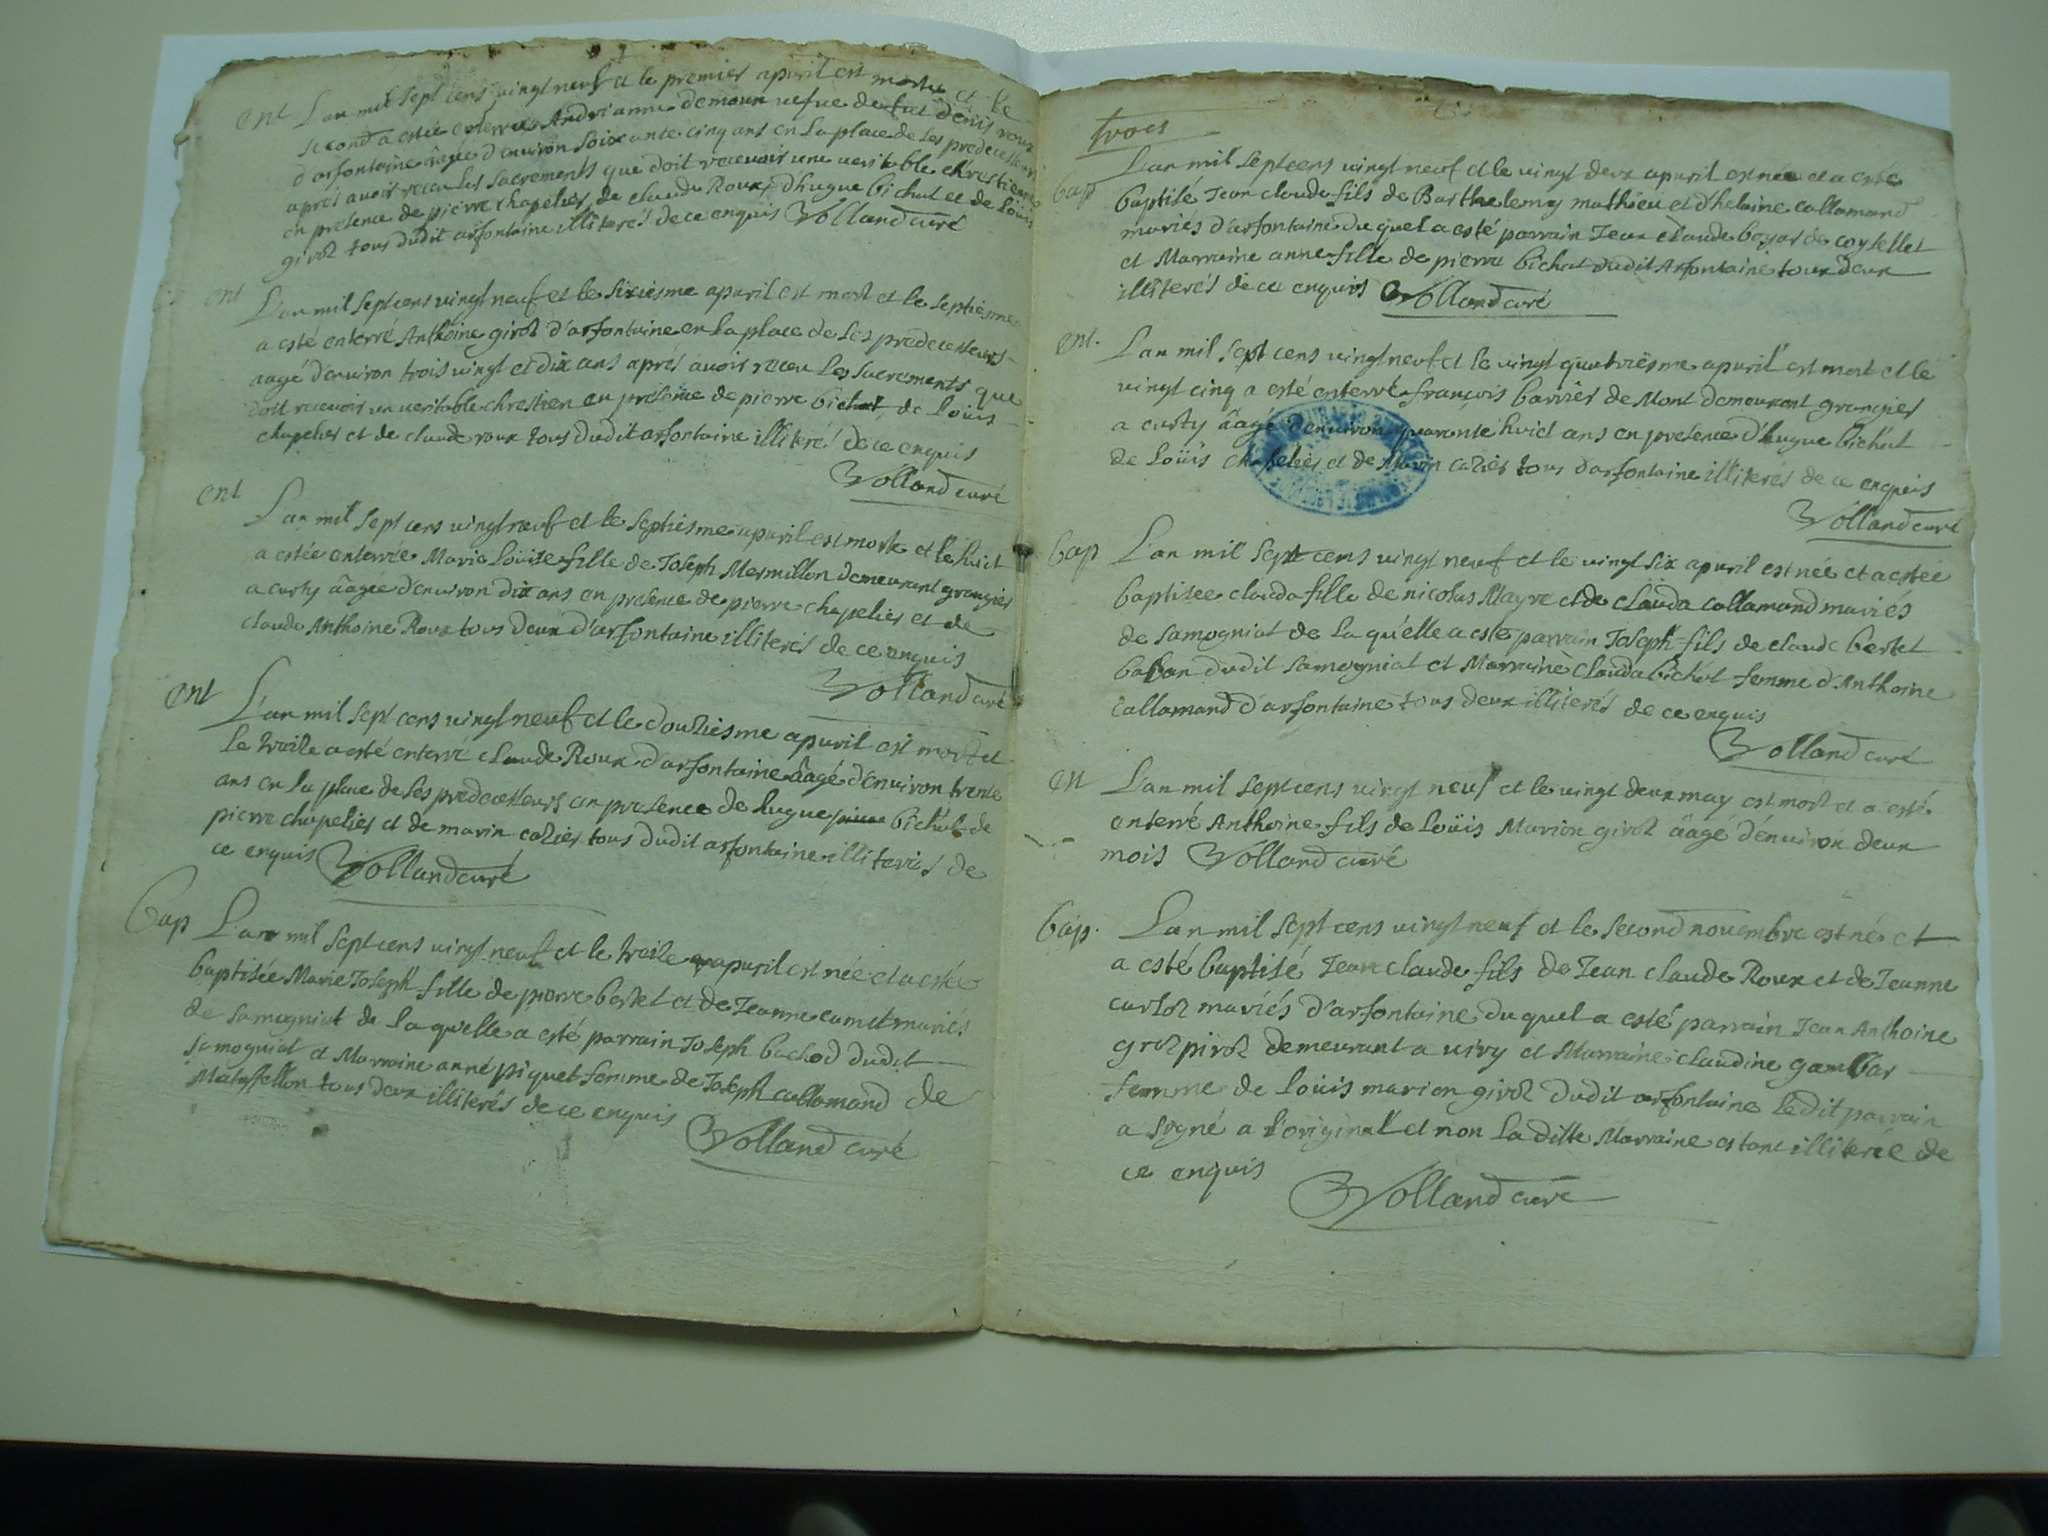 ent L'an mil sept cens vingt neuf et le premier apuril est morte et le
second a estée enterrée Andrianne demour vefve de fut denis roux
d'arfontaine âagée d'environ soixante cinq ans en la place de ses predecesseurs
aprés avoir receu les sacrements que doit recevoir une veritable chrestienne
en presence de pierre chapelier, de claude Roux, d'hugue bichat et de Loüis
girod tous dudit arfontaine illiterés de ce enquis Volland curé
ent L'an mil sept cens vingt neuf et le sixiesme apuril est mort et le septiesme
a esté enterré Anthoine girod d'arfontaine en la place de ses predecesseurs
aagé d'environ trois vingt et dix ans aprés avoir receu les sacrements que
doit recevoir un veritable chrestien en presence de pierre bichat de Loüis
chapelier et de claude roux tous dudit arfontaine illiterés de ce enquis
Volland curé
ent L'an mil sept cens vingt neuf et le septiesme apuril est morte et le huict
a estée enterrée Marie Loüise fille de Joseph Mermillon demeurant grangier
a curty âagée d'environ dix ans en presence de pierre chapelier et de
claude Anthoine Roux tous deux d'arfontaine illiterés de ce enquis
Volland curé
ent L'an mil sept cens vingt neuf et le douziesme apuril est mort et
le treize a esté enterré claude Roux d'arfontaine âagé d'environ trente
ans en la place de ses predecesseurs en presence de hugue bichat de
pierre chapelier et de marin cazier tous dudit arfontaine illiterés de
ce enquis Volland curé
bap L'an mil sept cens vingt neuf et le treize apuril est née et a estée
baptisée Marie Joseph fille de pierre bertet et de Jeanne cumet mariés
de samogniat de la quelle a esté parrain Joseph bachod dudit
samogniat et Marraine anne piquet femme de Joseph callamand de
Mataffellon tous deux illiterés de ce enquis Volland curé
trois
bap L'an mil sept cens vingt neuf et le vingt deux apuril est née et a esté
baptisé Jean claude fils de Barthelemy mathieu et d'helaine callamand
mariés d'arfontaine du quel a esté parrain Jean claude boyar de coysellet
et Marraine anne fille de pierre bichat dudit Arfontaine tous deux
illiterés de ce enquis Volland curé
ent. L'an mil sept cens vingt neuf et le vingt quatriesme apuril est mort et le
vingt cinq a esté enterré françois barrier de Mont demeurant grangier
a curty âagé d'environ quarante huict ans en presence d'hugue bichat
de Loüis chapelier et de Marin cazier tous d'arfontaine illiterés de ce enquis
Volland curé
bap L'an mil sept cens vingt neuf et le vingt six apuril est née et a estée
baptisée clauda fille de nicolas Mayre et de clauda callamand mariés
de samogniat de la quelle a esté parrain Joseph fils de claude bertet
baban dudit samogniat et Marraine clauda bichat femme d'Anthoine
callamand d'arfontaine tous deux illiterés de ce enquis
Volland curé
en L'an mil sept cens vingt neuf et le vingt deux may est mort et a esté
enterré Anthoine fils de Loüis Marion girod âagé d'environ deux
mois Volland curé
bap. L'an mil sept cens vingt neuf et le second novembre est né et
a esté baptisé Jean claude fils de Jean claude Roux et de Jeanne
curtoz mariés d'arfontaine du quel a esté parrain Jean Anthoine
groz piroz demeurant a viry et Marraine claudine gambar
femme de Loüis marion giroz dudit arfontaine ledit parrain
a signé a l'original et non la ditte Marraine estant illiterée de
ce enquis
Volland curé